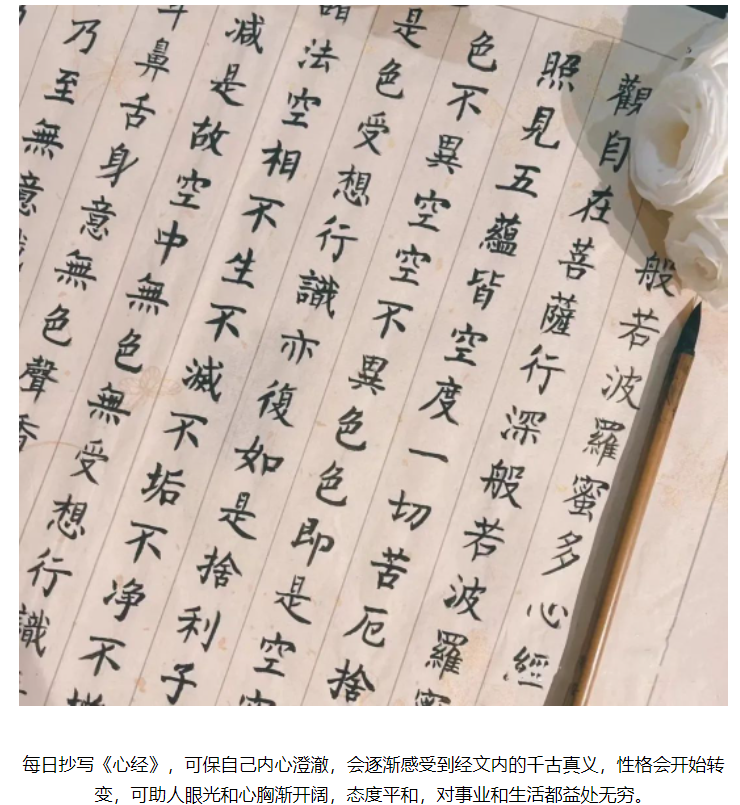 般若波羅蜜多心經
觀自在菩薩行深般若波羅蜜
照見五蘊皆空度一切苦厄捨
色不異空空不異色色即是空空
是色受想行識亦復如是捨利子
諸法空相不生不滅不垢不净不增
减是故空中無色無受想行識
耳鼻舌身意無色聲香
乃至無意識
每日抄写《心经》，可保自己内心澄澈，会逐渐感受到经文内的千古真义，性格会开始转
变，可助人眼光和心胸渐开阔，态度平和，对事业和生活都益处无穷。